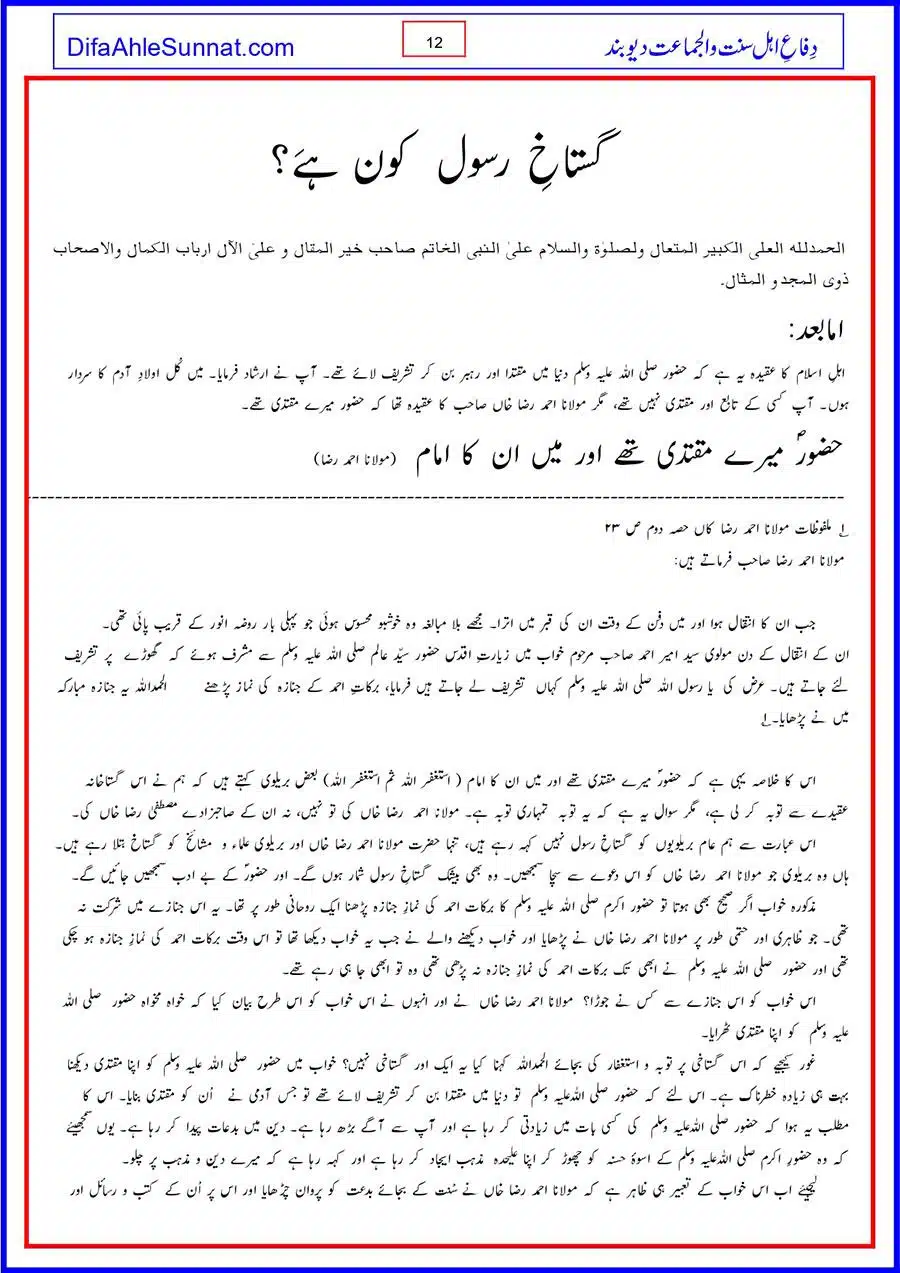 DifaAhleSunnat.com
12
دِفاعِ اہل سنت والجماعت دیوبند
گستاخِ رسول کون ہے؟
الحمدلله العلی الکبیر المتعال ولصلوٰة والسلام علیٰ النبی الخاتم صاحب خیر المقال و علیٰ الآل ارباب الکمال والاصحاب
ذوی المجد و المثال۔
امابعد:
اہلِ اسلام کا عقیدہ یہ ہے کہ حضور صلی اللہ علیہ وسلم دنیا میں مقتدا اور رہبر بن کر تشریف لائے تھے۔ آپ نے ارشاد فرمایا۔ میں کُل اولادِ آدم کا سردار
ہوں۔ آپ کسی کے تابع اور مقتدی نہیں تھے، مگر مولانا احمد رضا خاں صاحب کا عقیدہ تھا کہ حضور میرے مقتدی تھے۔
حضورؐ میرے مقتدی تھے اور میں ان کا امام (مولانا احمد رضا)
۱ ملفوظات مولانا احمد رضا کاں حصہ دوم ص ۲۳
مولانا احمد رضا صاحب فرماتے ہیں:
جب ان کا انتقال ہوا اور میں دفن کے وقت ان کی قبر میں اترا۔ مجھے بلا مبالغہ وہ خوشبو محسوس ہوئی جو پہلی بار روضہ انور کے قریب پائی تھی۔
ان کے انتقال کے دن مولوی سید امیر احمد صاحب مرحوم خواب میں زیارتِ اقدس حضور سیّد عالم صلی اللہ علیہ وسلم سے مشرف ہوئے کہ گھوڑے پر تشریف
لئے جاتے ہیں۔ عرض کی یا رسول اللہ صلی اللہ علیہ وسلم کہاں تشریف لے جاتے ہیں فرمایا، برکاتِ احمد کے جنازہ کی نماز پڑھنے الحمداللہ یہ جنازہ مبارکہ
میں نے پڑھایا۔۱
اس کا خلاصہ یہی ہے کہ حضورؐ میرے مقتدی تھے اور میں ان کا امام (استغفر اللہ ثم استغفر اللہ) بعض بریلوی کہتے ہیں کہ ہم نے اس گستاخانہ
عقیدے سے توبہ کر لی ہے، مگر سوال یہ ہے کہ یہ توبہ تمہاری توبہ ہے۔ مولانا احمد رضا خاں کی تو نہیں، نہ ان کے صاحبزادے مصطفیٰ رضا خاں کی۔
اس عبارت سے ہم عام بریلویوں کو گستاخِ رسول نہیں کہہ رہے ہیں، تنہا حضرت مولانا احمد رضا خاں اور بریلوی علماء و مشائخ کو گستاخ بتلا رہے ہیں۔
ہاں وہ بریلوی جو مولانا احمد رضا خاں کو اس دعوے سے سچا سمجھیں۔ وہ بھی بیشک گستاخِ رسول شمار ہوں گے۔ اور حضورؐ کے بے ادب سمجھیں جائیں گے۔
مذکورہ خواب اگر صحیح بھی ہوتا تو حضور اکرم صلی اللہ علیہ وسلم کا برکات احمد کی نمازِ جنازہ پڑھنا ایک روحانی طور پر تھا۔ یہ اس جنازے میں شرکت نہ
تھی۔ جو ظاہری اور حتمی طور پر مولانا احمد رضا خاں نے پڑھایا اور خواب دیکھنے والے نے جب یہ خواب دیکھا تھا تو اس وقت برکات احمد کی نمازِ جنازہ ہو چکی
تھی اور حضور صلی اللہ علیہ وسلم نے ابھی تک برکات احمد کی نمازِ جنازہ نہ پڑھی تھی وہ تو ابھی جا ہی رہے تھے۔
اس خواب کو اس جنازے سے کس نے جوڑا؟ مولانا احمد رضا خاں نے اور انہوں نے اس خواب کو اس طرح بیان کیا کہ خواہ مخواہ حضور صلی اللہ
علیہ وسلم کو اپنا مقتدی ٹھرایا۔
غور کیجیے کہ اس گستاخی پر توبہ و استغفار کی بجائے الحمداللہ کہنا کیا یہ ایک اور گستاخی نہیں؟ خواب میں حضور صلی اللہ علیہ وسلم کو اپنا مقتدی دیکھنا
بہت ہی زیادہ خطرناک ہے۔ اس لئے کہ حضور صلی اللہعلیہ وسلم تو دنیا میں مقتدا بن کر تشریف لائے تھے تو جس آدمی نے اُن کو مقتدی بنایا۔ اس کا
مطلب یہ ہوا کہ حضور صلی اللہعلیہ وسلم کی کسی بات میں زیادتی کر رہا ہے اور آپ سے آگے بڑھ رہا ہے۔ دین میں بدعات پیدا کر رہا ہے۔ یوں سمجھیئے
کہ وہ حضورِ اکرم صلی اللہعلیہ وسلم کے اسوۂ حسنہ کو چھوڑ کر اپنا علیحدہ مذہب ایجاد کر رہا ہے اور کہہ رہا ہے کہ میرے دین و مذہب پر چلو۔
لیجیئے اب اس خواب کے تعبیر ہی ظاہر ہے کہ مولانا احمد رضا خاں نے سُنت کے بجائے بدعت کو پروان چڑھایا اور اس پر اُن کے کتب و رسائل اور